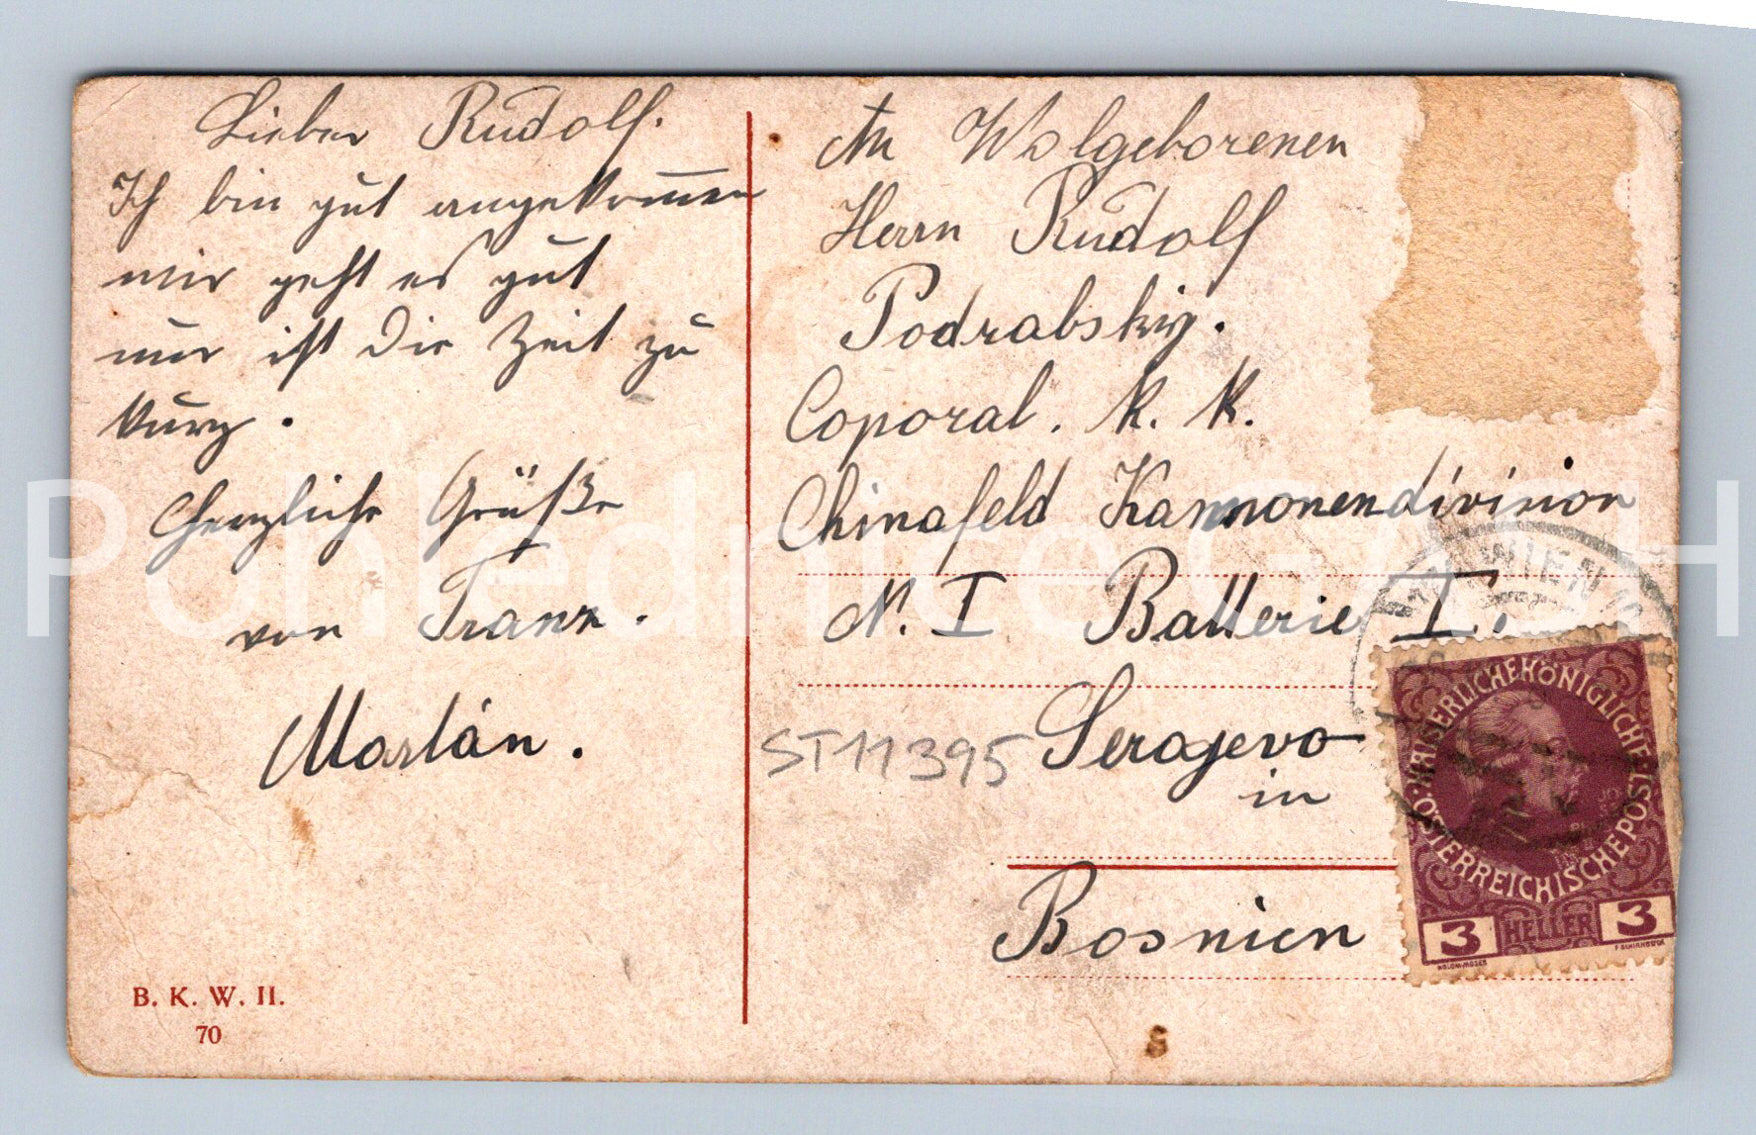 Lieber Rudolf.
Ich bin gut angekom̅en
mir geht es gut
nur ist die Zeit zu
kurz.
Herzliche Grüße
von Franz.
B. K. W. II.
70
An Wolgeborenen
Herrn Rudolf
Podrabskij.
Coporal. k. k.
Chinafeld Kannonendivision
N. I Batterie I.
ST11395 Serajevo
in
Bosnien
WIEN
KAISERLICHEKÖNIGLICHE
ÖSTERREICHISCHEPOST
3 HELLER 3
Pohlednice GASH